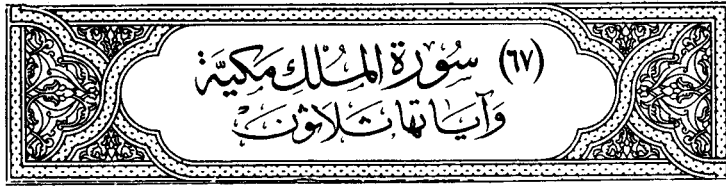 (٦٧) سُورَةُ المُلْكِ مَكيَّة
وَآيَاتُهَا ثَلَاثُونَ